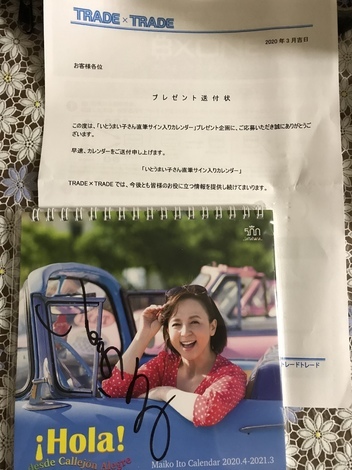 TRADE × TRADE
2020 年 3 月吉日
お客様各位
プレゼント送付状
この度は、「いとうまい子さん直筆サイン入りカレンダー」プレゼント企画に、ご応募いただき誠にありがとうございます。
早速、カレンダーをご送付申し上げます。
「いとうまい子さん直筆サイン入りカレンダー」
TRADE×TRADE では、今後とも皆様のお役に立つ情報を提供し続けてまいります。
ードトレード
¡Hola!
desde Callejón Alegre
Maiko Ito Calendar 2020.4-2021.3